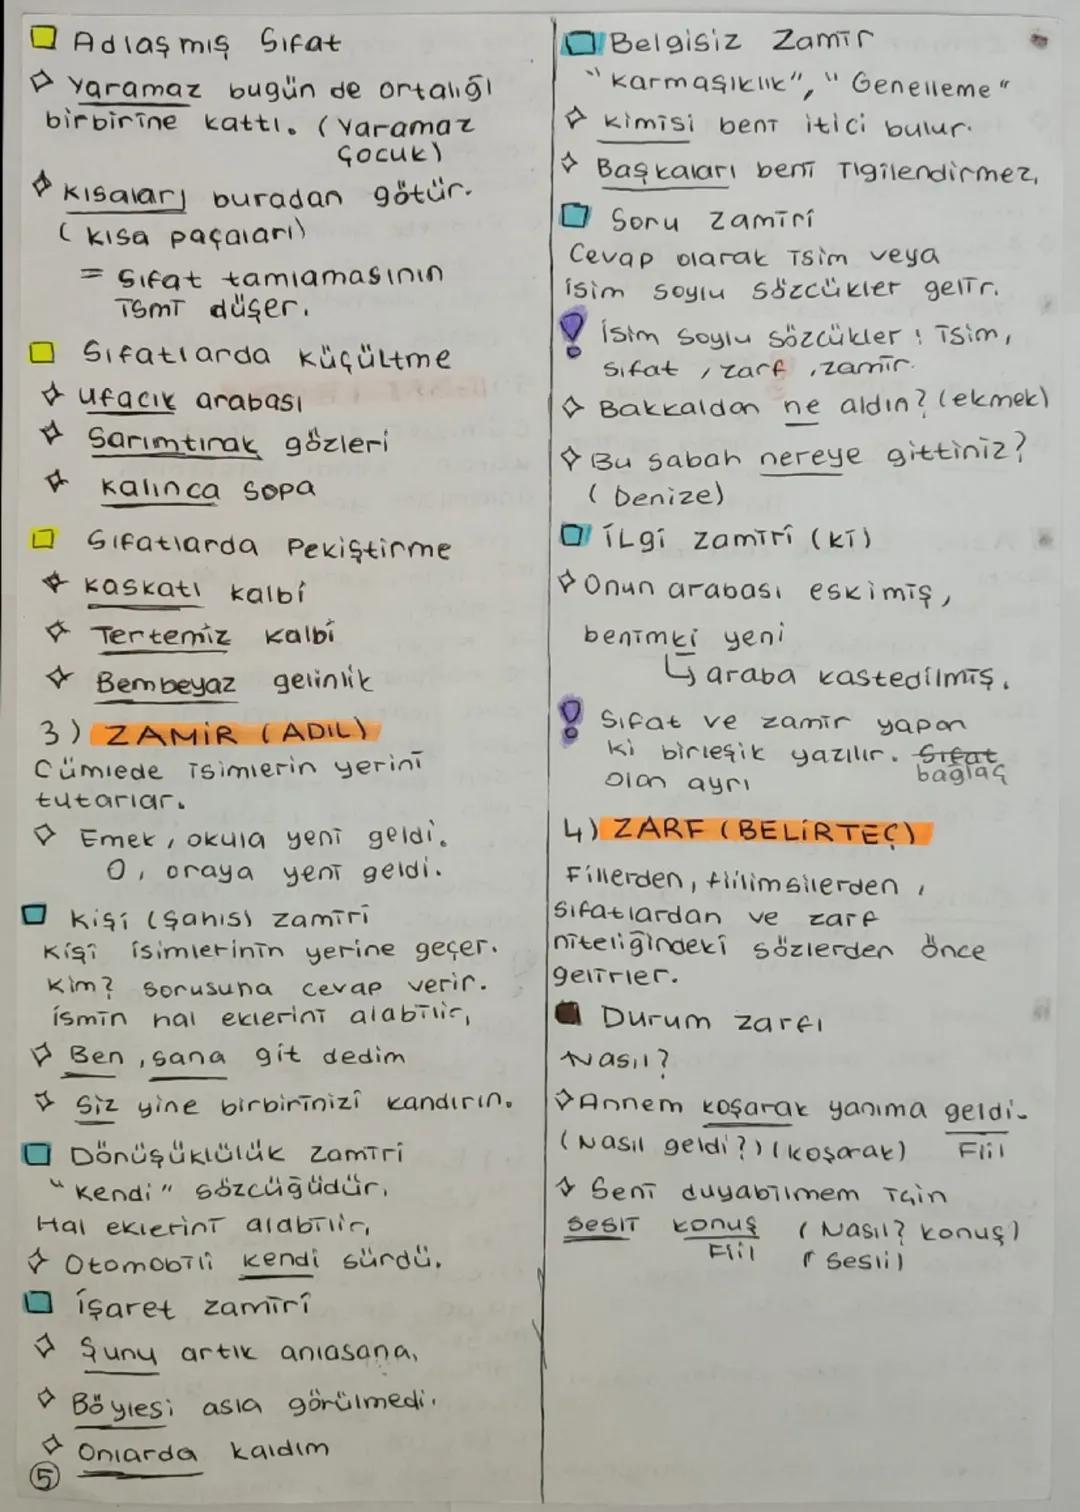 Adlaşmış Sıfat
Yaramaz bugün de ortalığı
birbirine kattı. (Yaramaz
çocuk)
Kısaları buradan götür.
(kısa paçaları)
= Sıfat tamlamasının
ismi düşer.
Sıfatlarda Küçültme
Ufacık arabası
Sarımtırak gözleri
Kalınca sopa
Sıfatlarda Pekiştirme
Kaskatı kalbi
Tertemiz kalbi
Bembeyaz gelinlik
3) ZAMİR (ADIL)
Cümlede isimlerin yerini
tutarlar.
Emek, okula yeni geldi.
O, oraya yeni geldi.
Kişi (Şahıs) zamiri
Kişi isimlerinin yerine geçer.
Kim? sorusuna cevap verir.
İsmin hal eklerini alabilir,
Ben, sana git dedim
Siz yine birbirinizi kandırın.
Dönüşüklülük Zamiri
"Kendi" sözcüğüdür.
Hal eklerini alabilir,
Otomobili kendi sürdü.
İşaret zamiri
Şunu artık anlasana,
Böylesi asla görülmedi.
Onlarda kaldım
5
Belgisiz Zamir
"Karmaşıklık", "Genelleme"
Kimisi beni itici bulur.
Başkaları beni ilgilendirmez,
Soru zamiri
Cevap olarak isim veya
isim soylu sözcükler gelir.
İsim soylu sözcükler: isim,
sıfat, zarf, zamir.
Bakkaldan ne aldın? (ekmek)
Bu sabah nereye gittiniz?
(Denize)
İLgi zamiri (ki)
Onun arabası eskimiş,
benimki yeni
araba kastedilmiş.
Sıfat ve zamir yapan
ki birleşik yazılır. Sıfat
bağlaç
olan ayrı
4) ZARF (BELİRTEÇ)
Fiilerden, fiilimsilerden,
sıfatlardan ve zarf
niteliğindeki sözlerden önce
gelirler.
Durum zarfı
Nasıl?
Annem koşarak yanıma geldi.
(Nasıl geldi?) (koşarak) Fiil
Seni duyabilmem için
sesli konuş (Nasıl? konuş)
Fiil (Sesli)